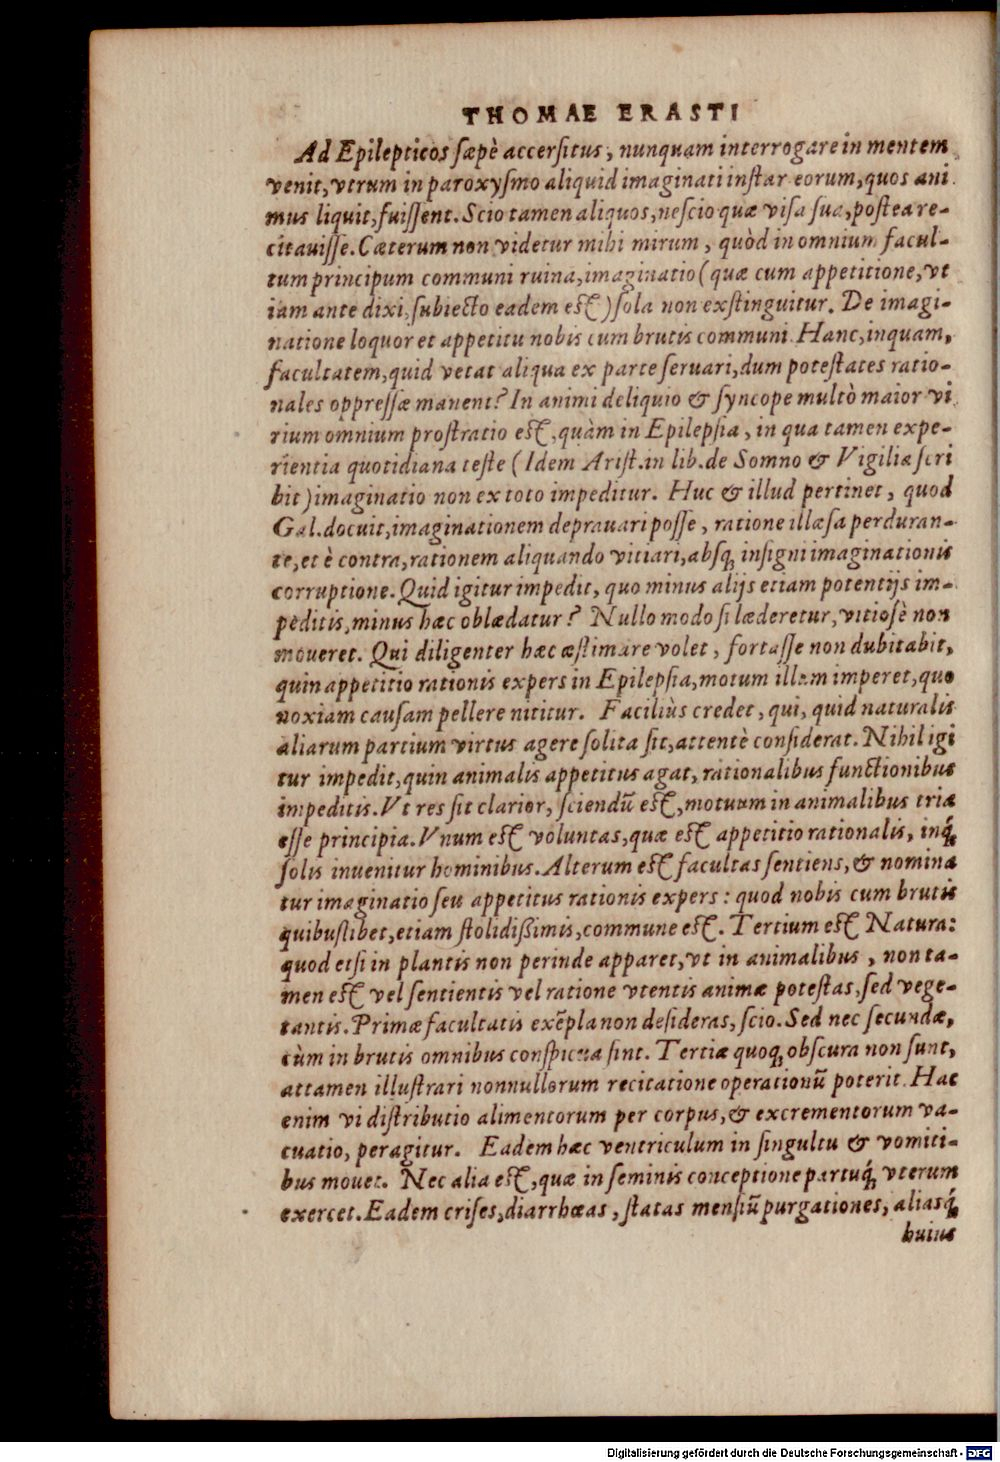 THOMAE ERASTI
Ad Epilepticos sæpè accersitus, nunquam interrogare in mentem
venit, vtrum in paroxysmo aliquid imaginati instar eorum, quos ani
mus liquit, fuissent. Scio tamen aliquos, nescio quæ visa sua, postea re-
citauisse. Cæterum non videtur mihi mirum, quòd in omnium facul-
tum principum communi ruina, imaginatio (quæ cum appetitione, vt
iam ante dixi, subiecto eadem est) sola non exstinguitur. De imagi-
natione loquor et appetitu nobis cum brutis communi. Hanc, inquam,
facultatem, quid vetat aliqua ex parte seruari, dum potestates ratio-
nales oppressæ manent? In animi deliquio & syncope multò maior vi
rium omnium prostratio est, quàm in Epilepsia, in qua tamen expe-
rientia quotidiana teste (Idem Arist. in lib. de Somno & Vigilia scri
bit) imaginatio non ex toto impeditur. Huc & illud pertinet, quod
Gal. docuit, imaginationem deprauari posse, ratione illæsa perduran-
te, et è contra, rationem aliquando vitiari, absq; insigni imaginationis
corruptione. Quid igitur impedit, quo minus alijs etiam potentijs im-
peditis, minus hæc oblædatur? Nullo modo si læderetur, vitiosè non
moueret. Qui diligenter hæc æstimare volet, fortasse non dubitabit,
quin appetitio rationis expers in Epilepsia, motum illum imperet, quo
noxiam causam pellere nititur. Faciliùs credet, qui, quid naturalis
aliarum partium virtus agere solita sit, attentè considerat. Nihil igi
tur impedit, quin animalis appetitus agat, rationalibus functionibus
impeditis. Vt res sit clarior, sciendũ est, motuum in animalibus tria
esse principia. Vnum est voluntas, quæ est appetitio rationalis, inq́;
solis inuenitur hominibus. Alterum est facultas sentiens, & nomina
tur imaginatio seu appetitus rationis expers: quod nobis cum brutis
quibuslibet, etiam stolidißimis, commune est. Tertium est Natura:
quod etsi in plantis non perinde apparet, vt in animalibus, non ta-
men est vel sentientis vel ratione vtentis animæ potestas, sed vege-
tantis. Primæ facultatis exẽpla non desideras, scio. Sed nec secundæ,
cùm in brutis omnibus conspicua sint. Tertiæ quoq; obscura non sunt,
attamen illustrari nonnullorum recitatione operationũ poterit. Hac
enim vi distributio alimentorum per corpus, & excrementorum va-
cuatio, peragitur. Eadem hæc ventriculum in singultu & vomiti-
bus mouet. Nec alia est, quæ in seminis conceptione partuq́; vterum
exercet. Eadem crises, diarrhœas, statas mensiũ purgationes, aliasq́;
huius
Digitalisierung gefördert durch die Deutsche Forschungsgemeinschaft - DFG